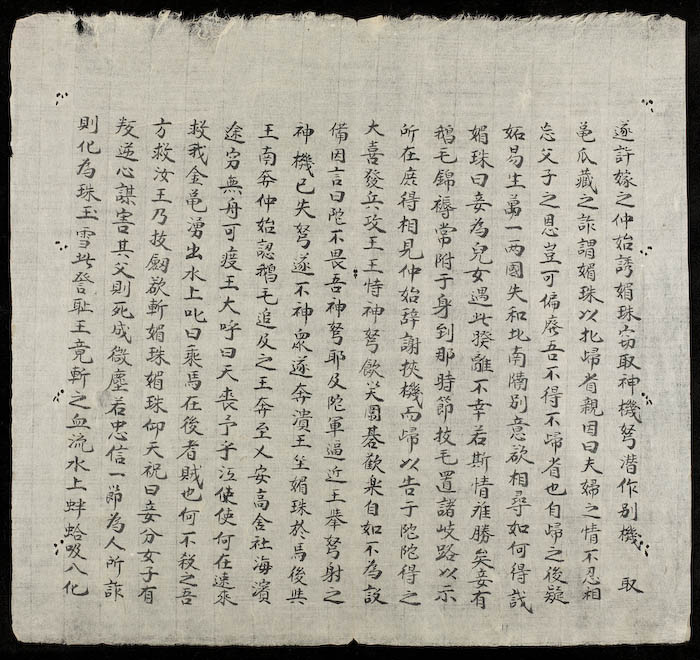 遂許嫁之仲始誘媚珠窃取神機弩潜作别機 取
亀爪藏之詐謂媚珠以北歸省親因曰夫婦之情不忍相
忘父子之恩豈可偏廢吾不得不歸省也自歸之後疑
妬易生萬一兩國失和北南隔别意欲相尋如何得哉
媚珠曰妾為兒女遇此睽離不幸若斯情难勝矣妾有
鵝毛錦褥常附于身到那時節抜毛置諸岐路以示
所在庶得相見仲始辞謝挾機而歸以告于陀陀得之
大喜發兵攻王王恃神弩飲笑圍碁歡楽自如不為設
備因言曰陀不畏吾神弩耶及陀軍逼近王舉弩射之
神機已失弩遂不神衆遂奔潰王坐媚珠於馬後與
王南奔仲始認鵝毛追及之王奔至乂安高舍社海濱
途穷無舟可渡王大呼曰天丧予乎江使使何在速來
救我金亀湧出水上叱曰乘馬在後者賊也何不殺之吾
方救汝王乃抜劔欲斬媚珠媚珠仰天祝曰妾分女子有
叛逆心謀害其父則死成微塵若忠信一節為人所詐
則化為珠玉雪此讐耻王竟斬之血流水上蚌蛤吸入化